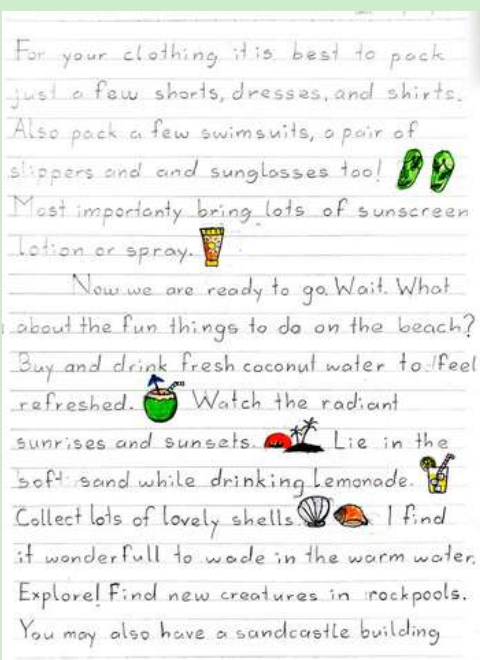 For your clothing it is best to pack
just a few shorts, dresses, and shirts.
Also pack a few swimsuits, a pair of
slippers and and sunglasses too!
Most importanty bring lots of sunscreen
lotion or spray.
Now we are ready to go. Wait. What
about the fun things to do on the beach?
Buy and drink fresh coconut water to feel
refreshed. Watch the radiant
sunrises and sunsets. Lie in the
soft sand while drinking Lemonade.
Collect lots of lovely shells. I find
it wonderfull to wade in the warm water.
Explore! Find new creatures in rockpools.
You may also have a sandcastle building